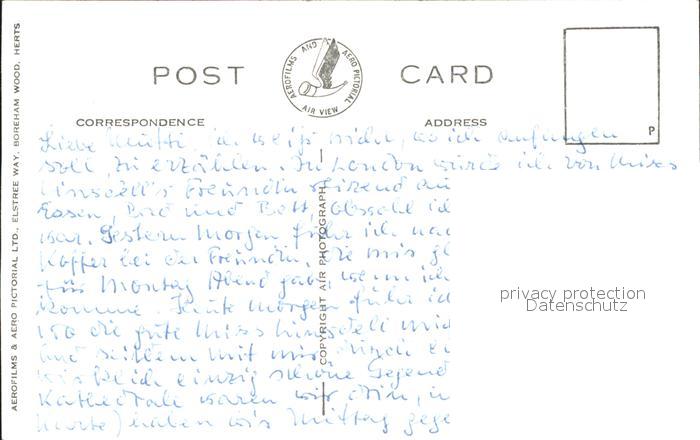 AEROFILMS & AERO PICTORIAL LTD., ELSTREE WAY, BOREHAM WOOD, HERTS
POST CARD
AEROFILMS AND AERO PICTORIAL
AIR VIEW
CORRESPONDENCE
ADDRESS
P
COPYRIGHT AIR PHOTOGRAPH
privacy protection
Datenschutz
Liebe Mutti, ich weiß nicht, wo ich anfangen
soll, zu erzählen. In London wurde ich von Miss
Freundin
Essen, Bad und Bett, obwohl ich
war. Gestern Morgen fuhr ich nac
Koffer bei der Freundin, die mir
für Montag Abend gab, wenn ich
komme. Heute Morgen fuhr ich
wo die gute Miss
und seitdem mit mir durch
wirklich einzig schöne Gegend
Kathedrale waren wir drin,
Karte) haben wir Mittag gege